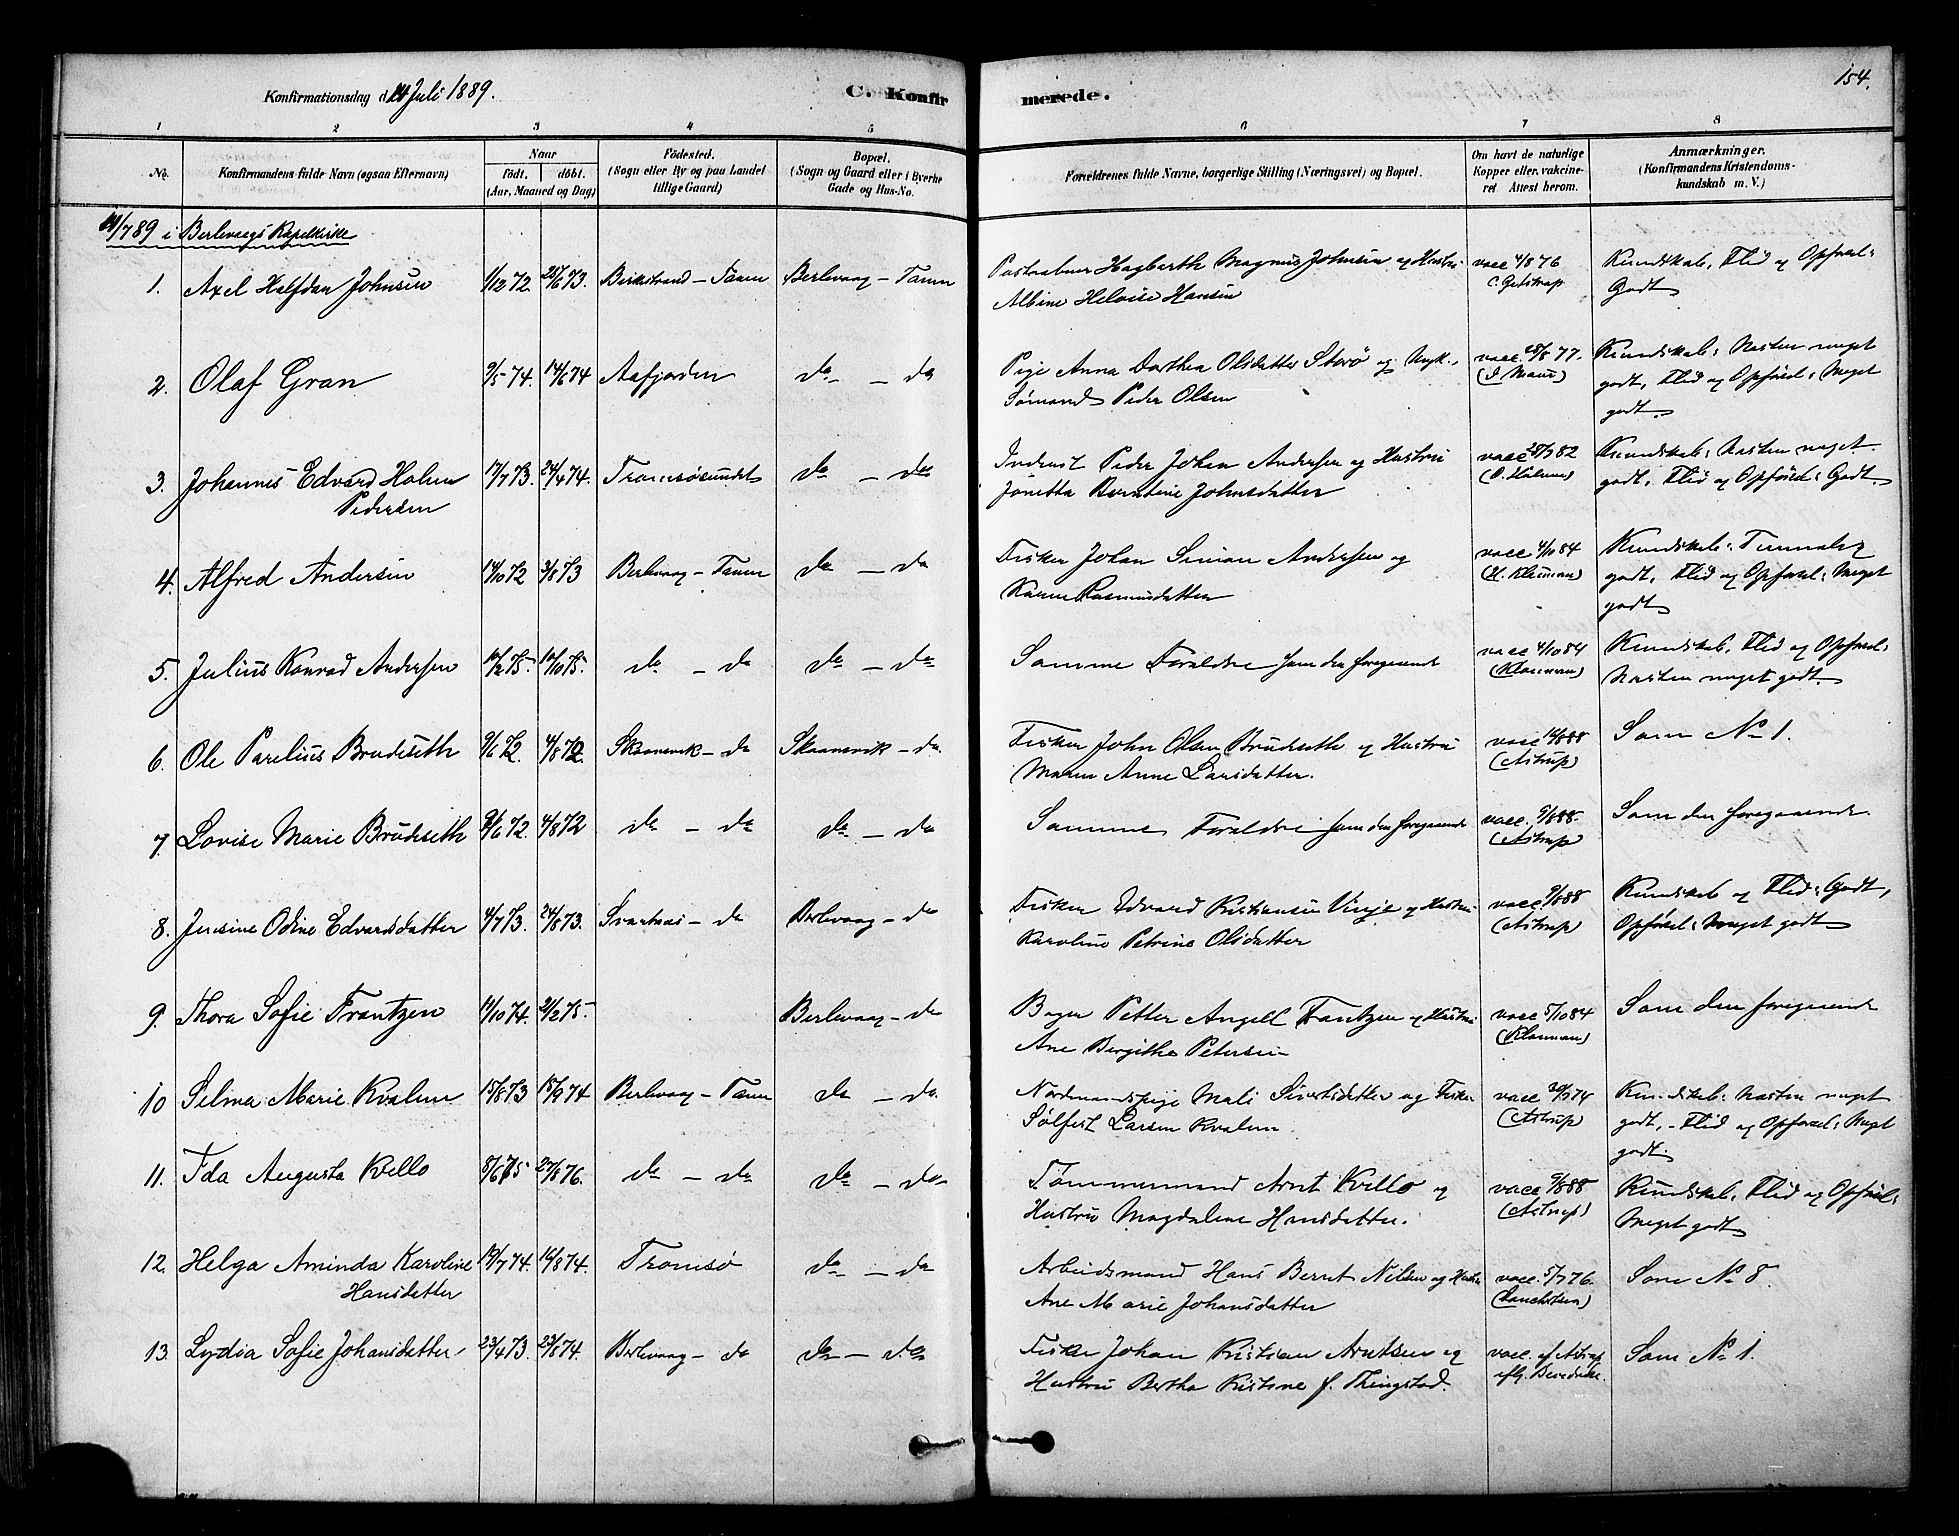 Konfirmationsdag d. 14 Juli 1889.
C. Konfir
merede.
154.
1 2 3 4 5 6 7 8
No.
Konfirmandens fulde Navn (ogsaa Efternavn)
Naar
födt. döbt.
(Aar, Maaned og Dag)
Födested.
(Sogn eller By og paa Landet
tillige Gaard)
Bopæl.
(Sogn og Gaard eller i Byerne
Gade og Hus-No.
Forældrenes fulde Navne, borgerlige Stilling (Næringsvei) og Bopæl.
Om havt de naturlige
Kopper eller vakcine-
ret Attest herom.
Anmærkninger.
(Konfirmandens Kristendoms-
kundskab m. V.)
14/7 89 i Berlevaags Kapelkirke
1. Axel Halfdan Johnsen 1/12 72. 28/6 73. Birkestrand - Tanen Berlevaag - Tanen Hagbarth Magnus Johnsen og Hustru vacc 4/8 76 Kundskab, Flid og Opførsel:
Albine Heloise Hansen Godt
2. Olaf Gran 9/5 74. 14/6 74 Aafjorden do - do Pige Anna Dorthea Olsdatter Storø og Ungk., vacc. 28/8 77. Kundskab: Næsten meget
Sømand Peder Olsen godt, Flid og Opførsel: Meget
godt.
3. Johannes Edvard Holm 17/7 73. 24/4 74. Tromsøsundet do - do Inderst Peder Johan Andersen og Hustru vacc 28/7 82 Kundskab: Næsten meget
Pedersen Jonetta Berntine Johnsdatter godt, Flid og Opførsel: Godt
4. Alfred Andersen 14/10 72 3/8 73 Berlevaag - Tanen do - do Fisker Johan Simon Andersen og vacc 4/10 84 Kundskab: Temmelig
Karen Rasmusdatter (H. Klouman) godt, Flid og Opførsel: Meget
godt
5. Julius Konrad Andersen 12/2 75. 10/10 75. do - do do - do Samme Forældre som den foregaaende vacc 4/10 84 Kundskab, Flid og Opførsel:
(Klouman) Næsten meget godt.
6. Ole Parelius Brudeseth 9/6 72. 4/8 72. Skaansvik - do Skaansvik - do. Fisker John Olsen Brudseth og Hustru vacc 14/8 88 Som No 1.
Maren Anne Larsdatter. (Astrup)
7. Lovise Marie Brudseth 9/6 72. 4/8 72 do - do do - do Samme Forældre som den foregaaende vacc. 9/8 88. Som den foregaaende
(Astrup)
8. Jensine Odine Edvardsdatter 4/7 73. 24/8 73. Svartnæs - do Berlevaag - do Fisker Edvard Kristiansen Vinje og Hustru vacc 9/8 88 Kundskab og Flid: Godt,
Karoline Petrine Olsdatter (Astrup) Opførsel: Meget godt
9. Thora Sofie Frantzen 11/10 74. 21/2 75. Berlevaag - do Bager Petter Angell Frantzen og Hustru vacc 5/10 84 Som den foregaaende
Ane Bergithe Petersen (Klouman)
10 Selma Marie Kvalen 15/8 73 15/9 74 Berlevaag - Tanen do - do. Nordmandspige Mali Sivertsdatter og Fisker vacc 30/9 74 Kundskab: Næsten meget
Sølfest Larsen Kvalen. (Astrup) godt, - Flid og Opførsel: Meget
godt.
11. Ida Augusta Kvello 8/6 75 27/8 76. do - do do - do Tømmermand Arnt Kvello og vacc 9/8 88 Kundskab, Flid og Opførsel:
Hustru Magdalene Hansdatter. (Astrup) Meget godt
12. Helga Aminda Karoline 19/7 74. 16/8 74. Tromsø do - do Arbeidsmand Hans Berret Nilsen og Hustru vacc 5/7 76. Som No 8.
Hansdatter Ane Marie Johansdatter
13. Lydia Sofie Johansdatter 23/4 73. 23/8 74. Berlevaag - do do - do Fisker Johan Kristian Arntsen og vacc. af Astrup Som No 1.
Hustru Bertha Kristine f. Thingstad.